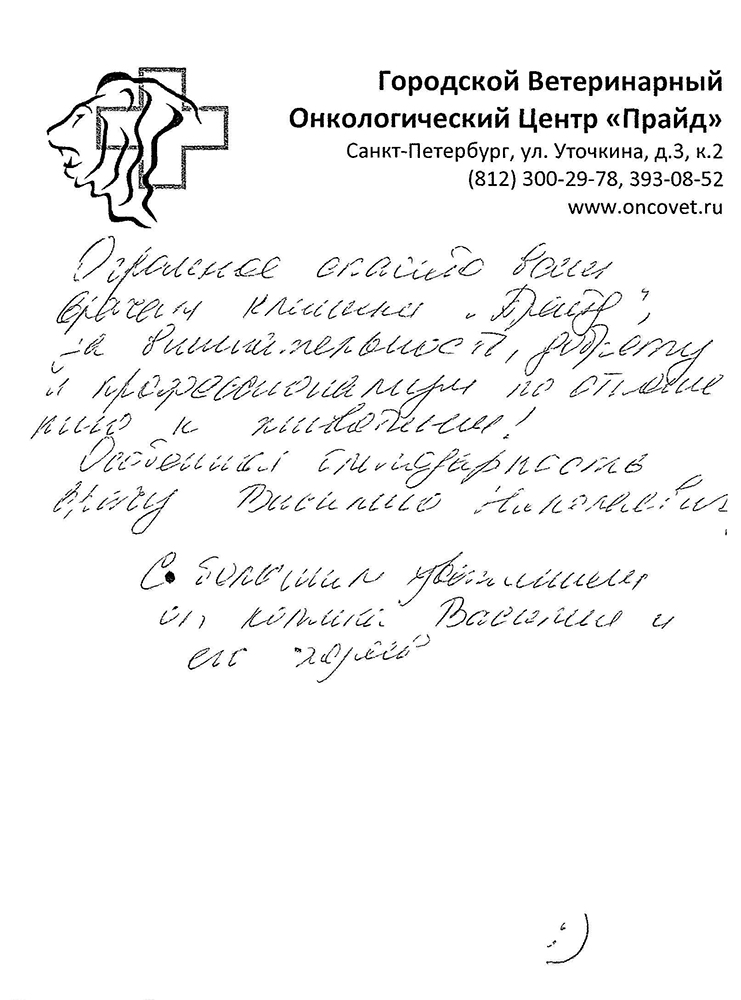 Городской Ветеринарный
Онкологический Центр «Прайд»
Санкт-Петербург, ул. Уточкина, д.3, к.2
(812) 300-29-78, 393-08-52
www.oncovet.ru
Огромное спасибо всем
врачам клиники „Прайд",
за внимательность, доброту
и профессионализм по отноше
нию к животным!
Особенная благодарность
врачу Василию Николаевич
С большим уважением
от кошки Василии и
его
:)